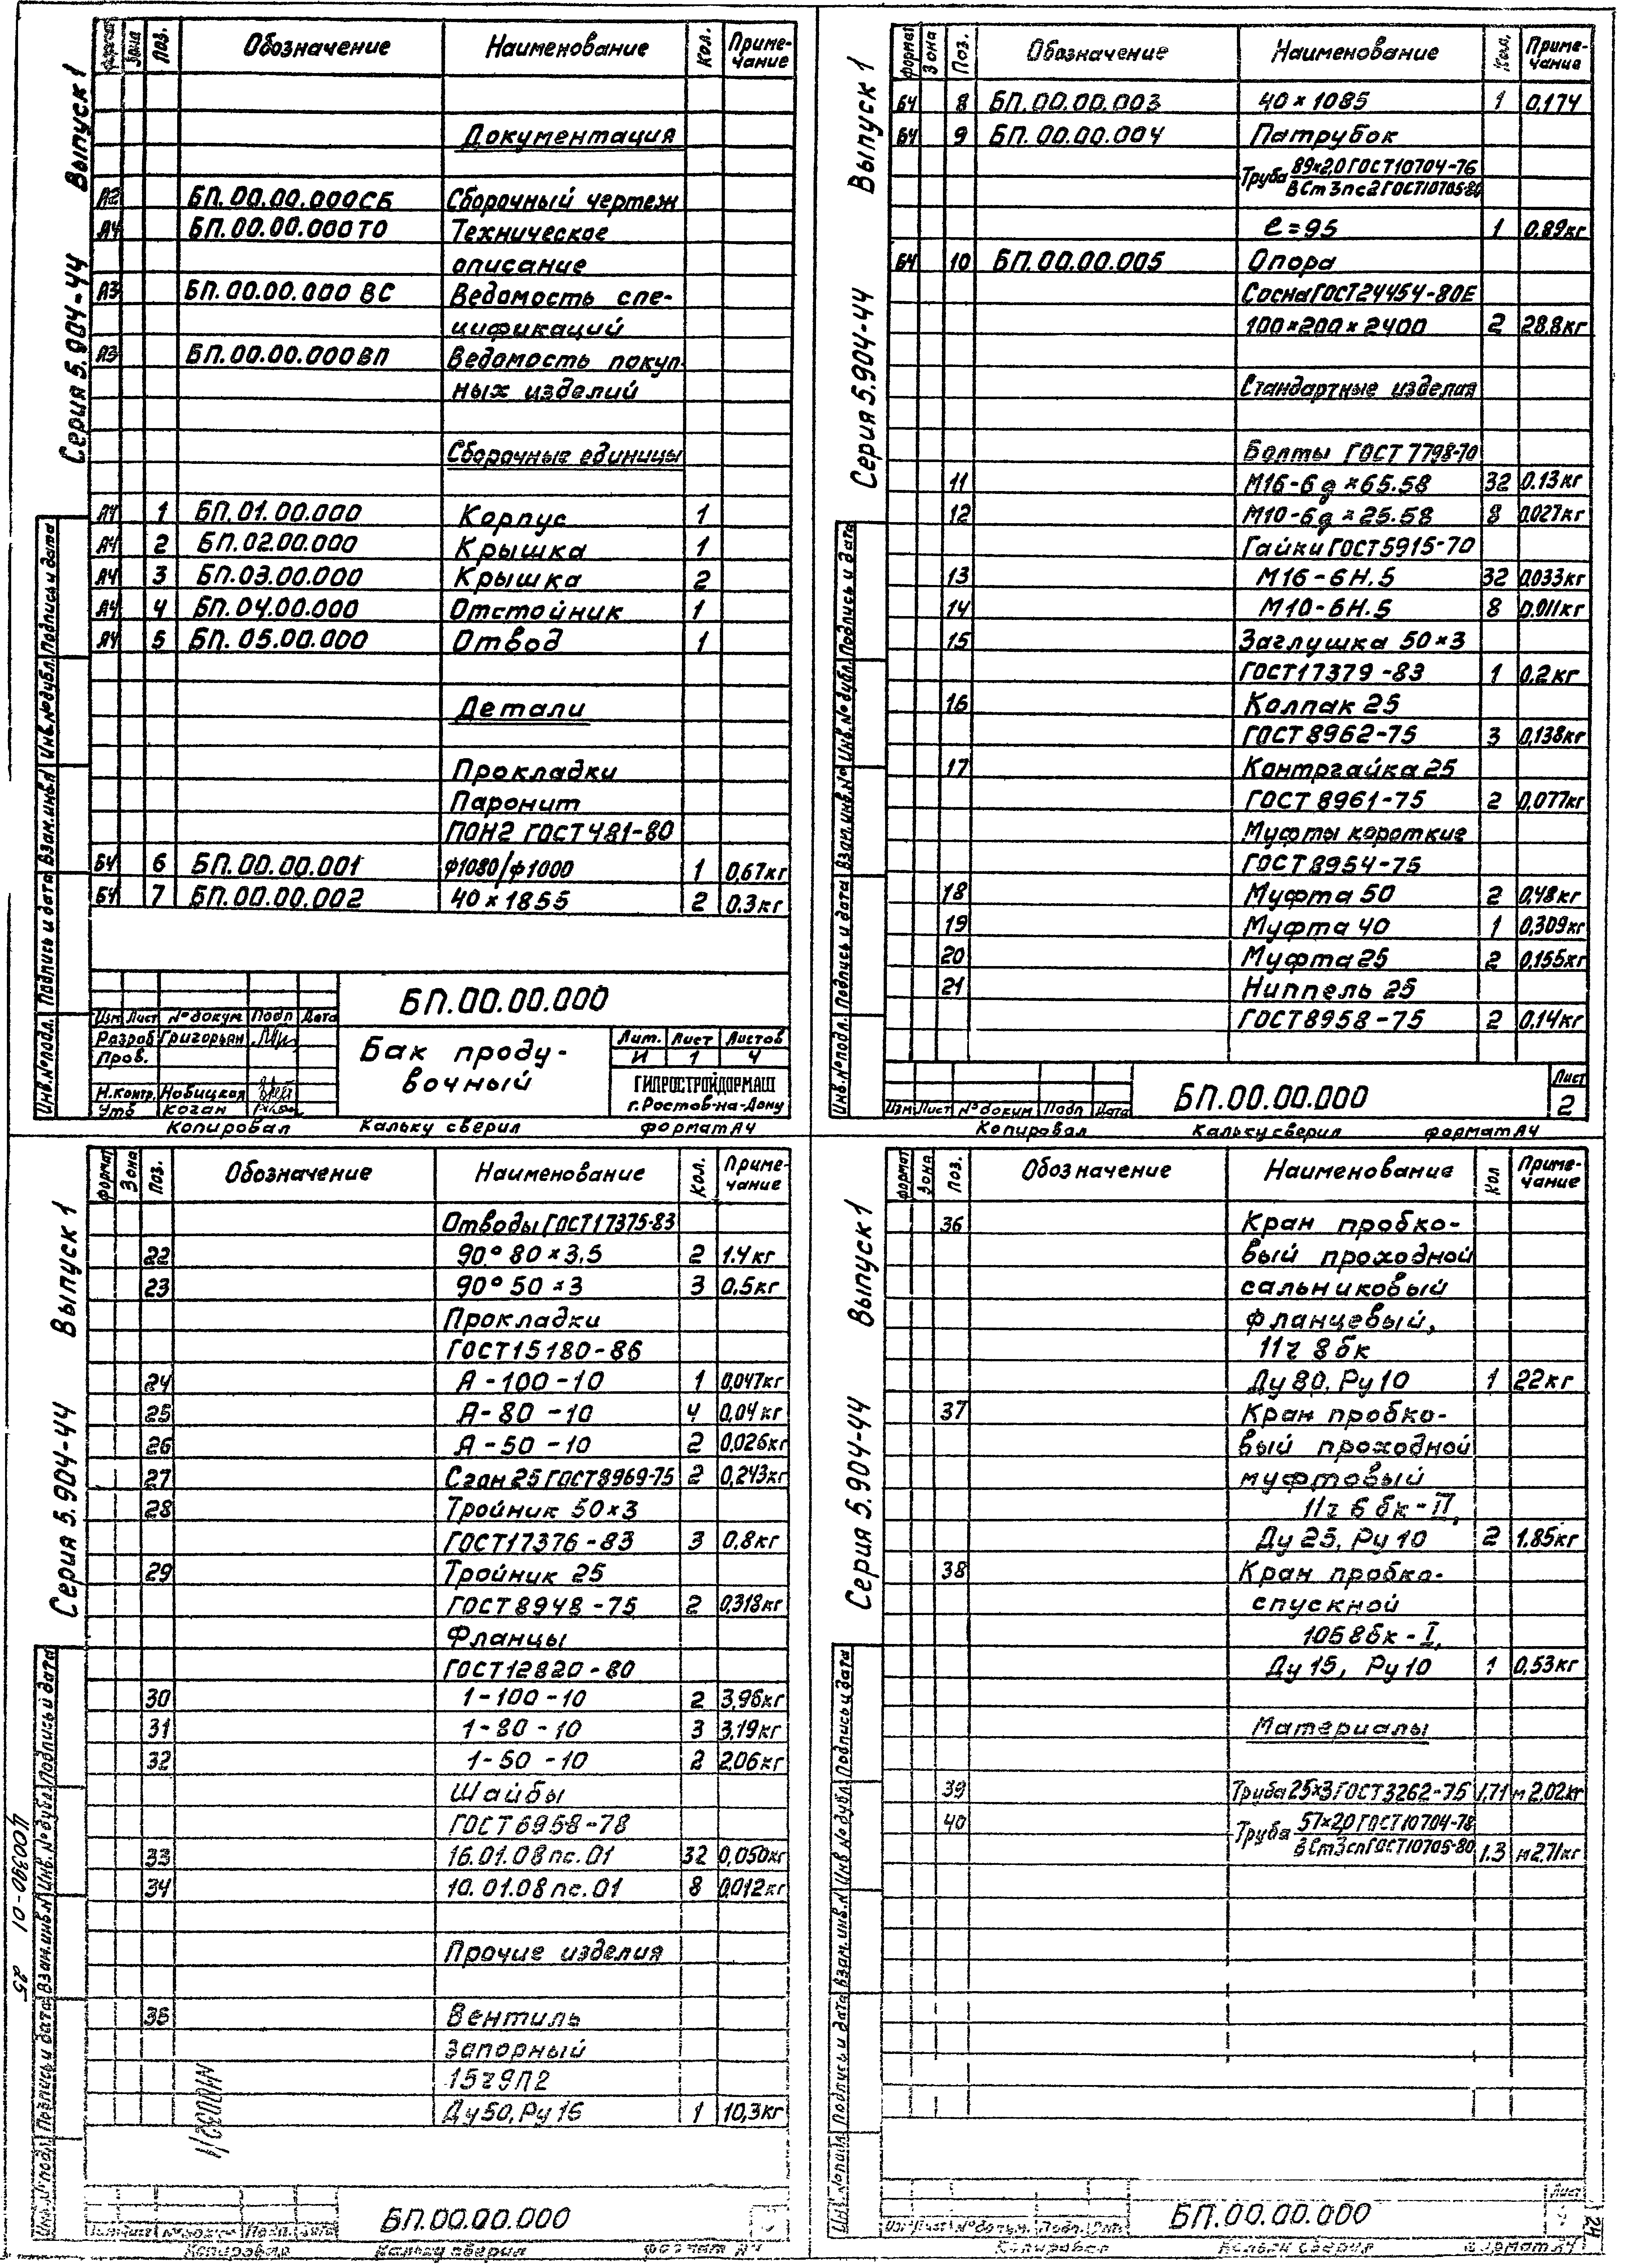 Серия 5.904-44 Выпуск 1
Формат Зона Поз. Обозначение Наименование Кол. Приме-
чание
Документация
А2 БП.00.00.000СБ Сборочный чертеж
А4 БП.00.00.000ТО Техническое
описание
А3 БП.00.00.000 ВС Ведомость спе-
цификаций
А3 БП.00.00.000ВП Ведомость покуп-
ных изделий
Сборочные единицы
А4 1 БП.01.00.000 Корпус 1
А4 2 БП.02.00.000 Крышка 1
А4 3 БП.03.00.000 Крышка 2
А4 4 БП.04.00.000 Отстойник 1
А4 5 БП.05.00.000 Отвод 1
Детали
Прокладки
Паронит
ПОН2 ГОСТ 481-80
БЧ 6 БП.00.00.001 ф1080/ф1000 1 0,67кг
БЧ 7 БП.00.00.002 40×1855 2 0.3кг
Инв.№подл. Подпись и дата Взам.инв.№ Инв.№дубл. Подпись и дата
БП.00.00.000
Изм Лист №докум Подп Дата
Разраб Григорьян
Пров.
Н.контр. Новицкая
Утв Коган
Бак проду-
вочный
Лит. Лист Листов
И 1 4
ГИПРОСТРОЙДОРМАШ
г.Ростов-на-Дону
Копировал Кальку сверил формат А4
Серия 5.904-44 Выпуск 1
формат Зона Поз. Обозначение Наименование Кол. Приме-
чание
БЧ 8 БП.00.00.003 40×1085 1 0,174
БЧ 9 БП.00.00.004 Патрубок
Труба 89×2,0 ГОСТ10704-76
ВСт3пс2ГОСТ10705-80
ℓ=95 1 0.89кг
БЧ 10 БП.00.00.005 Опора
Сосна ГОСТ24454-80Е
100×200×2400 2 28.8кг
Стандартные изделия
Болты ГОСТ 7798-70
11 М16-6g×65.58 32 0.13кг
12 М10-6g×25.58 8 0.027кг
Гайки ГОСТ5915-70
13 М16-6Н.5 32 0,033кг
14 М10-6Н.5 8 0.011кг
15 Заглушка 50×3
ГОСТ17379-83 1 0.2кг
16 Колпак 25
ГОСТ 8962-75 3 0,138кг
17 Контргайка 25
ГОСТ 8961-75 2 0,077кг
Муфты короткие
ГОСТ8954-75
18 Муфта 50 2 0,48кг
19 Муфта 40 1 0,309кг
20 Муфта 25 2 0,155кг
21 Ниппель 25
ГОСТ8958-75 2 0,14кг
Инв.№подл. Подпись и дата Взам.инв.№ Инв.№дубл. Подпись и дата
Изм Лист №докум Подп Дата
БП.00.00.000
Лист
2
Копировал Кальку сверил формат А4
Серия 5.904-44 Выпуск 1
формат Зона Поз. Обозначение Наименование Кол. Приме-
чание
Отводы ГОСТ17375-83
22 90° 80×3,5 2 1.4кг
23 90° 50×3 3 0.5кг
Прокладки
ГОСТ15180-86
24 А-100-10 1 0,047кг
25 А-80-10 4 0,04кг
26 А-50-10 2 0,026кг
27 Сгон 25 ГОСТ8969-75 2 0,243кг
28 Тройник 50×3
ГОСТ17376-83 3 0,8кг
29 Тройник 25
ГОСТ8948-75 2 0,318кг
Фланцы
ГОСТ12820-80
30 1-100-10 2 3,96кг
31 1-80-10 3 3,19кг
32 1-50-10 2 2.06кг
Шайбы
ГОСТ6958-78
33 16.01.08пс.01 32 0,050кг
34 10.01.08пс.01 8 0.012кг
Прочие изделия
35 Вентиль
запорный
15ч9П2
Ду50, Ру16 1 10,3кг
Инв.№подл. Подпись и дата Взам.инв.№ Инв.№дубл. Подпись и дата
Ц00390-01 25
БП.00.00.000
Копировал Кальку сверил формат А4
Серия 5.904-44 Выпуск 1
формат Зона Поз. Обозначение Наименование Кол Приме-
чание
36 Кран пробко-
вый проходной
сальниковый
фланцевый,
11ч 8бк
Ду 80, Ру 10 1 22кг
37 Кран пробко-
вый проходной
муфтовый
11ч 6 бк-II,
Ду 25, Ру 10 2 1.85кг
38 Кран пробко-
спускной
10Б8бк-I,
Ду 15, Ру 10 1 0,53кг
Материалы
39 Труба 25×3 ГОСТ3262-75 1,71 м 2,02кг
40 Труба 57×2,0 ГОСТ10704-78
ВСт3сп ГОСТ10705-80 1.3 м 2.71кг
Инв.№подл. Подпись и дата Взам.инв.№ Инв.№дубл. Подпись и дата
БП.00.00.000
Лист
24
Копировал Кальку сверил формат А4